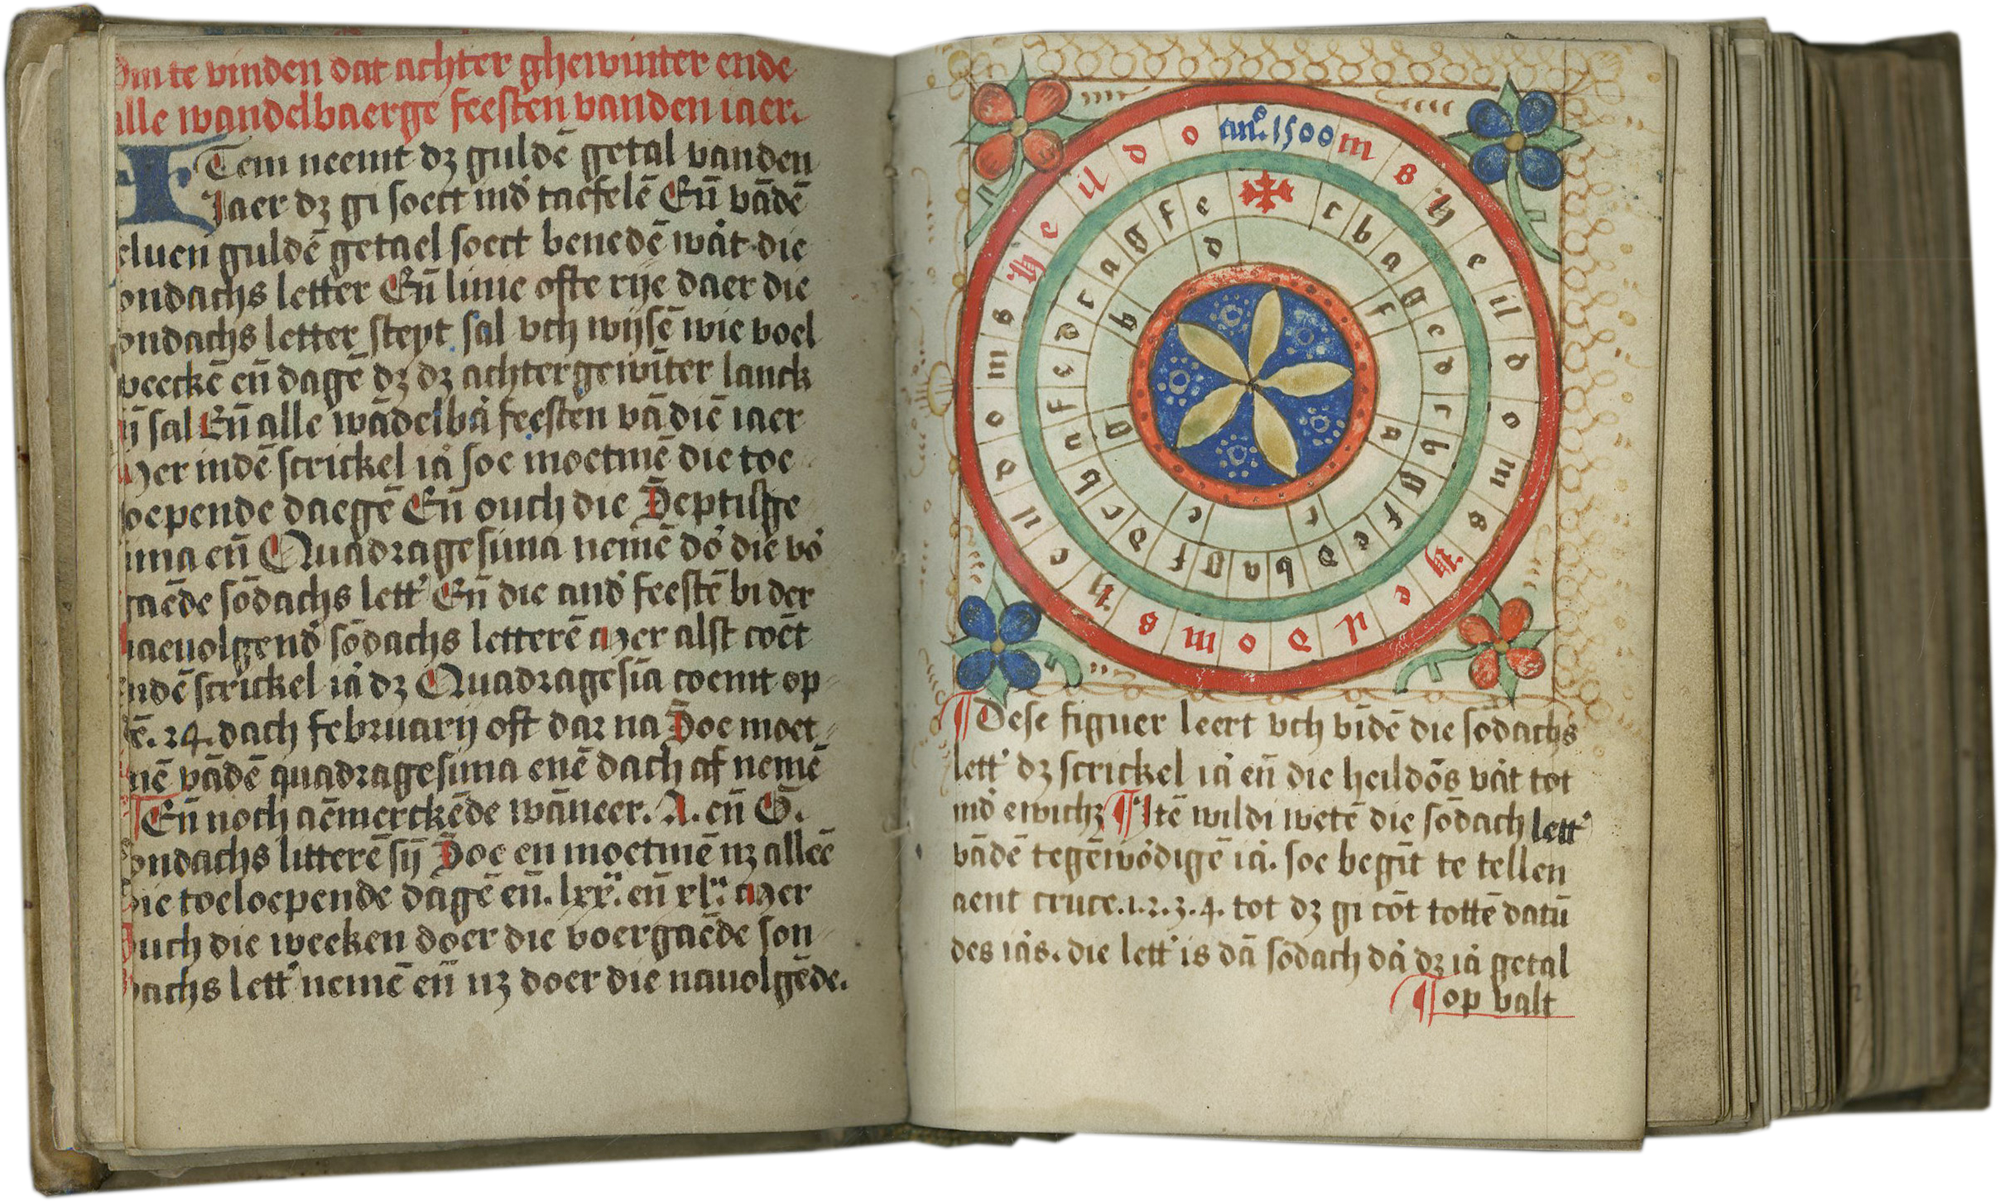 Om te vinden dat achter ghewinter ende
alle wandelbaerge feesten vanden iaer.
ITem neemt dʒ guldē getal vanden
Iaer dʒ gi soect indʼ taefelē Eñ vādē
seluen guldē getael soect benedē wāt die
sondachs letter Eñ linie ofte rije daer die
sondachs letter stept sal vch wijsē wie voel
weeckē eñ dagē dʒ dʒ achtergewīter lanck
sal Eñ alle wādelbā feesten vā diē iaer
Mer indē scrickel iā soe moetmē die toe
loepende daegē Eñ ouch die Septisge
sima eñ Quadragesima nemē dōʼ die vōʼ
gaēde sōdachs lettʼ Eñ die andʼ feestē bi der
naeuolgendʼ sōdachs letterē Mer alst coēt
indē scrickel iā dʒ Quadragesīa coemt op
24. dach februarij oft dar na Soe moet
mē vādē quadragesima enē dach af nemē
Eñ noch aēmerckēde wāneer. A. eñ G.
sondachs litterē sij Soe en moetmē nʒ alleē
die toeloepende dagē eñ. lxx. eñ xl. Mer
ouch die weeken doer die voergaēde son
dachs lettʼ nemē eñ nʒ doer die nauolgēde.
anº. 1500 m s h e il d o m s h e il d o m s h e il d o m s h e il d o
c b a g e d c b g f e d b a g f d c b a f e d c a g f e
f a c e g b d
Dese figuer leert vch vīdē die sōdachs
lettʼ dʒ scrickel iā eñ die heildōs vāt tot
indʼ ewichʒ Itē wildi wetē die sōdach lettʼ
vādē tegēwōdigē iā. soe begīt te tellen
aent cruce. 1. 2. 3. 4. tot dʒ gi cōt tottē datū
des iās. die lettʼ is dā sōdach dā dʒ iā getal
op valt